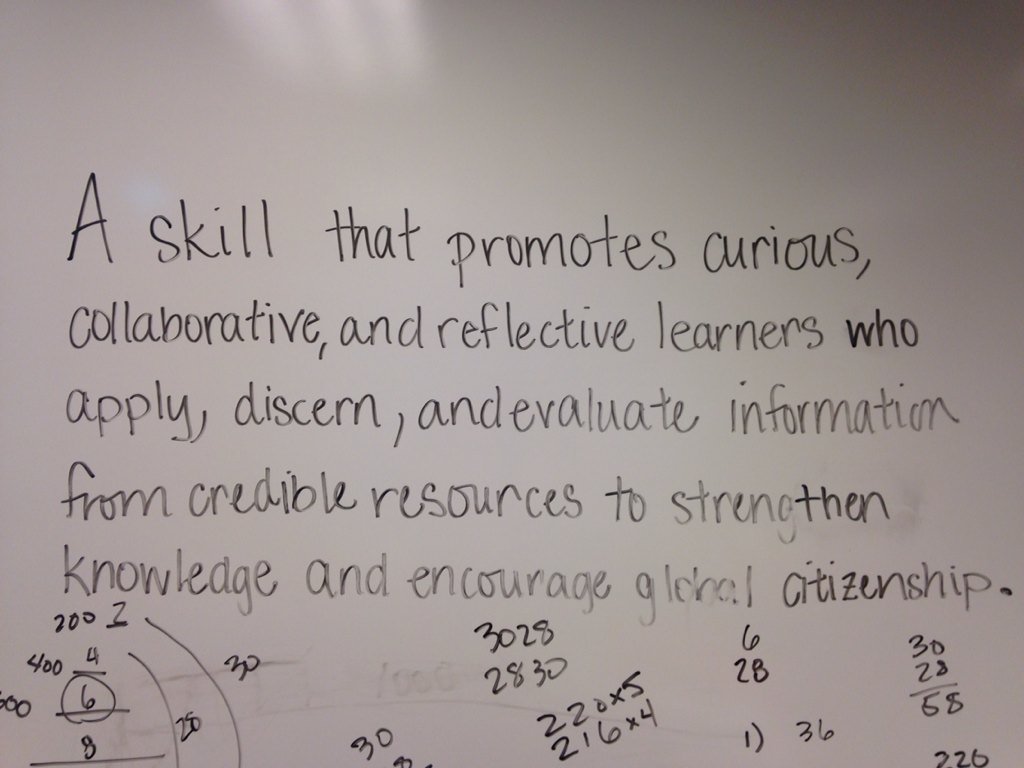 A skill that promotes curious,
collaborative, and reflective learners who
apply, discern, and evaluate information
from credible resources to strengthen
knowledge and encourage global citizenship.
200
400 4
6
8
30
28
3028
2830
30
220x5
216x4
6
28
1) 36
30
28
58
220